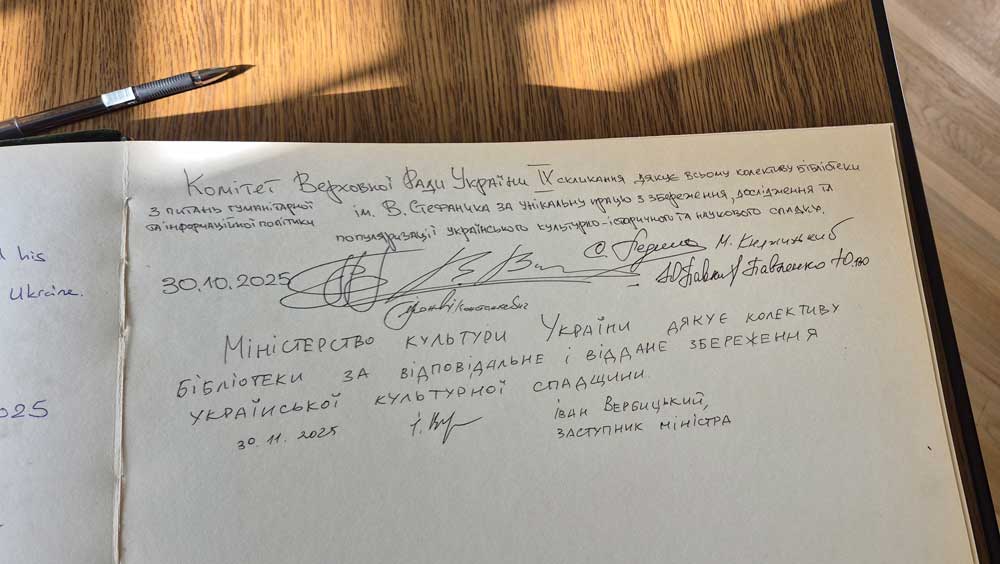 his
Ukraine.
2025
Комітет Верховної Ради України IX скликання дякує всьому колективу бібліотеки
з питань гуманітарної
та інформаційної політики
ім. В. Стефаника за унікальну працю з збереження, дослідження та
популяризації українського культурно-історичного та наукового спадку.
30.10.2025
Павленко Ю.
Міністерство культури України дякує колективу
бібліотеки за відповідальне і віддане збереження
української культурної спадщини.
30.11.2025
Іван Вербицький,
заступник міністра